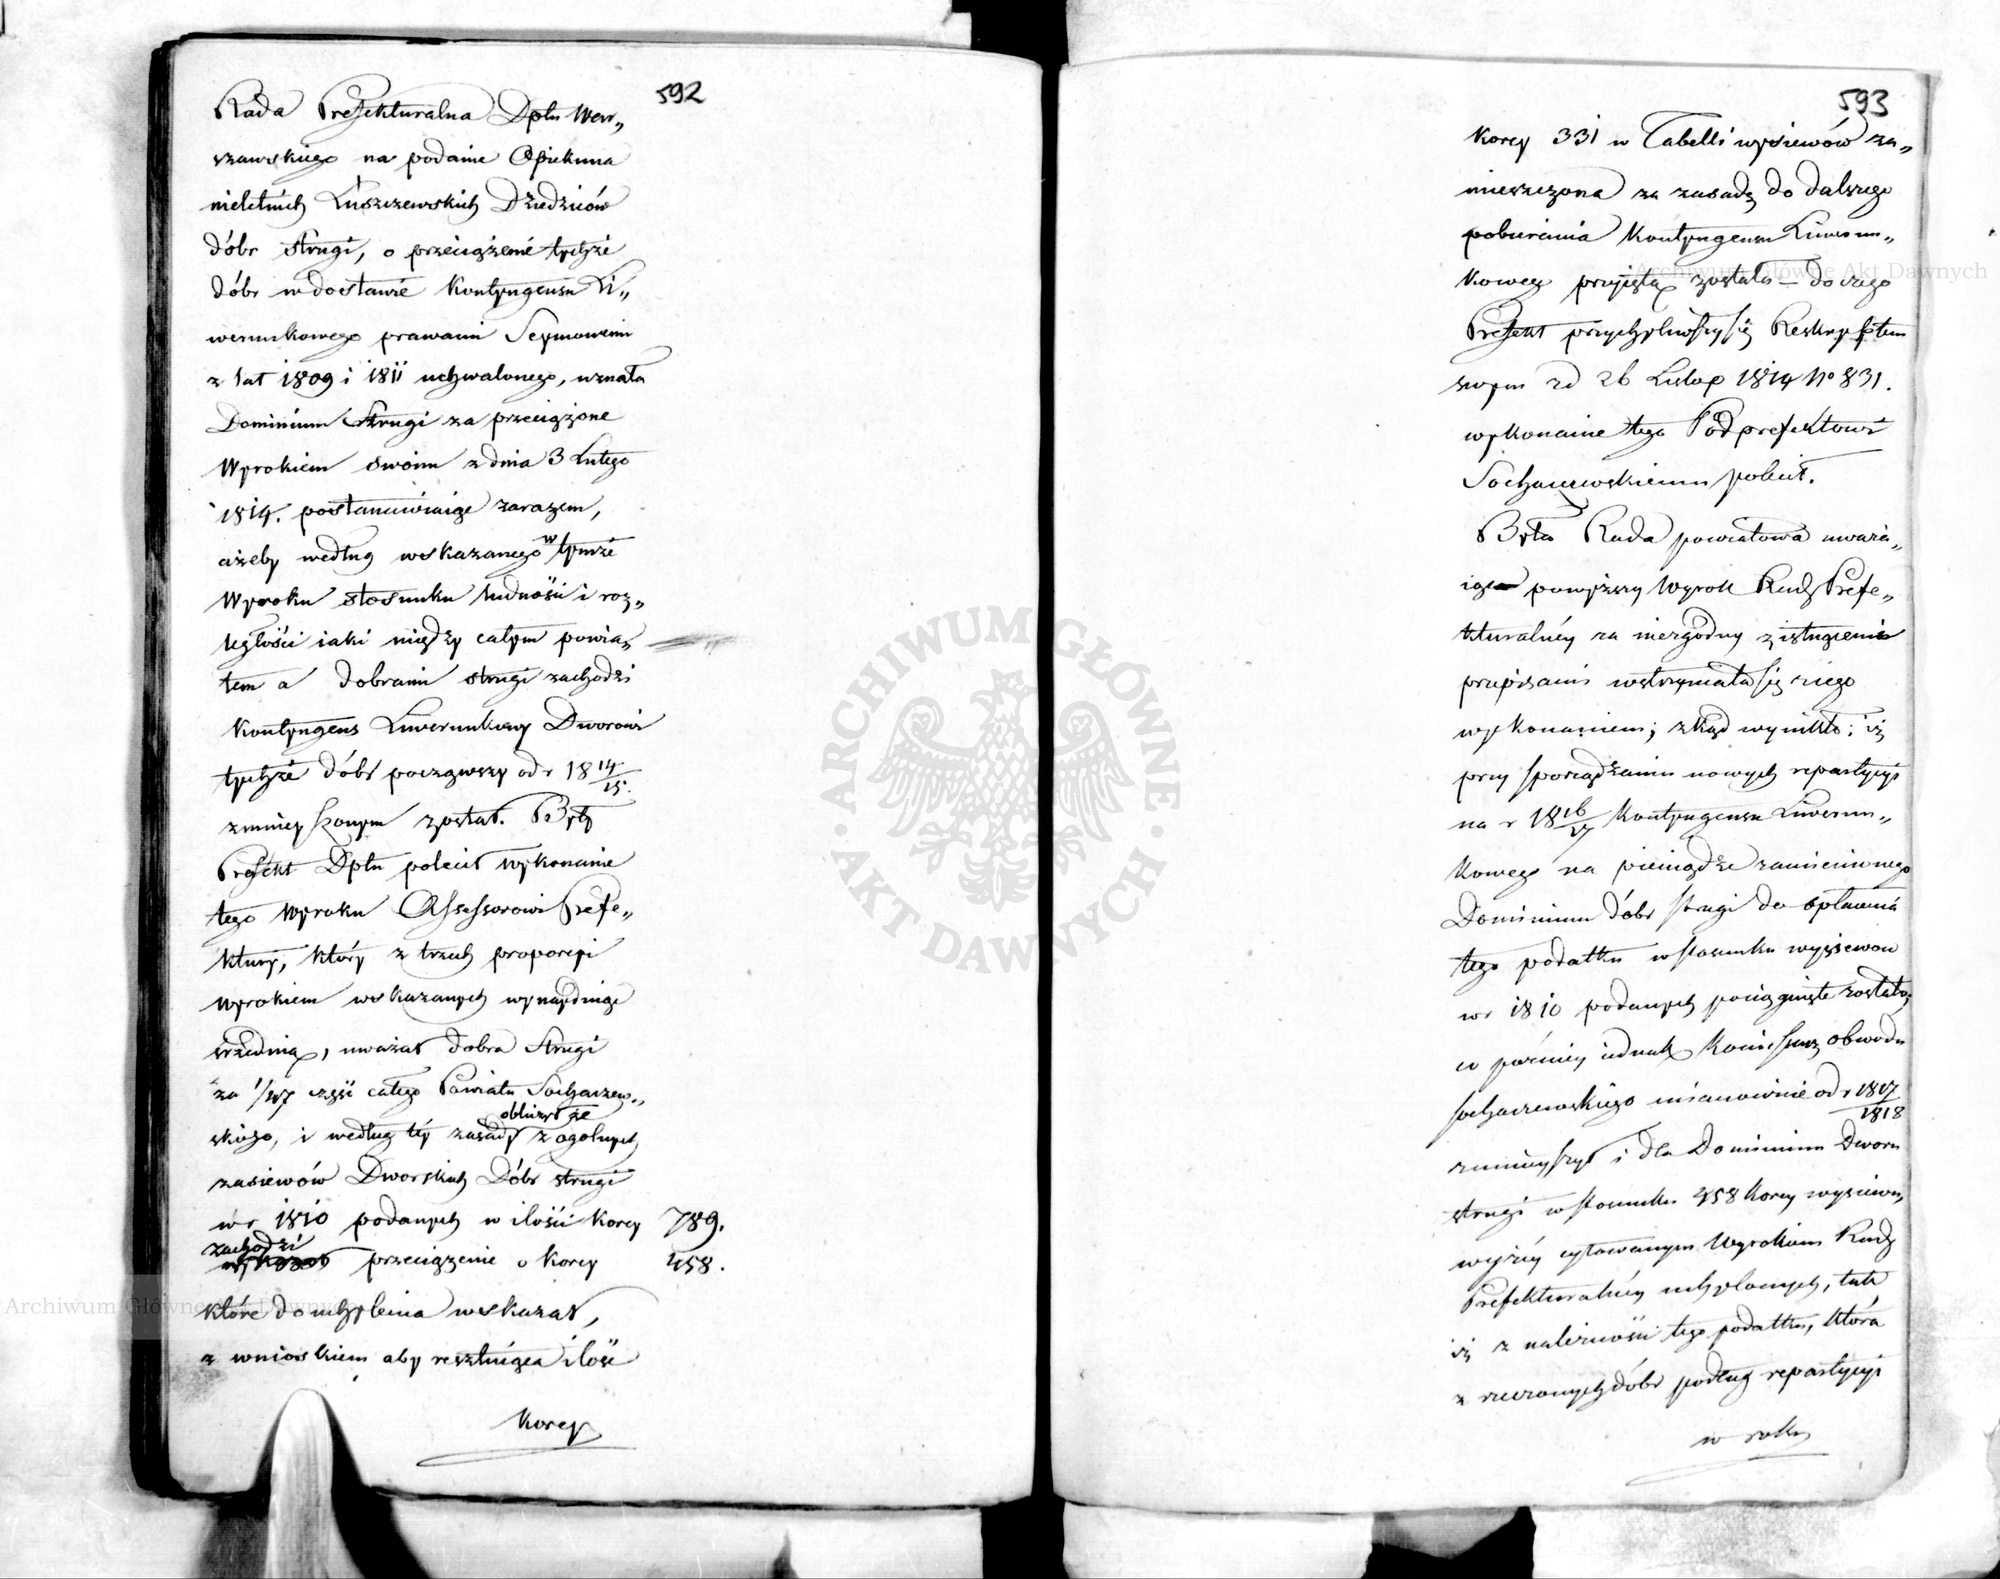 592
Rada Prefekturalna Dptu War„
szawskiego na podanie Opiekuna
nieletnich Łuszczewskich Dziedziców
dóbr Strugi, o przeciążenie tychże
dóbr w dostawie Kontyngensu Li„
werunkowego prawami Seymowemi
z lat 1809 i 1811 uchwalonego, uznała
Dominium Strugi za przeciążone
Wyrokiem swoim z dnia 3 Lutego
1814. postanawiaiąc zarazem,
ażeby według wskazanego w tymże
Wyroku stosunku ludności i roz„
ległości iaki między całym powia„
tem a dobrami Strugi zachodzi
Kontyngens Liwerunkowy Dworowi
tychże dóbr począwszy od r 1814/15.
zmnieyszonym został. Były
Prefekt Dptu polecił wykonanie
tego Wyroku Assessorowi Prefe„
ktury, który z trzech proporcyi
wyrokiem wskazanych wynaydując
srzednią, uważał dobra Strugi
za 1/47 część całego Powiatu Sochaczew„
skiego, i według téy zasady obliczył że z ogólnych
zasiewów Dworskich Dóbr Strugi
w r 1810 podanych w ilości Korcy 789.
zachodzi przeciążenie o Korcy 458.
które do uchylenia wskazał,
z wnioskiem aby resztuiąca ilość
Korcy
593
Korcy 331 w Tabelli wysiewów za„
mieszczona za zasadę do dalszego
pobierania Kontyngensu Liwerun„
kowego przyięta została – do czego
Prefekt przychyliwszy się Reskryptem
swym z d 26 Listop 1814 No 831.
wykonanie tego Podprefektowi
Sochaczewskiemu polecił.
Była Rada powiatowa uważa„
iąc powyższy Wyrok Rady Prefe„
kturalnéy za niezgodny z istnącemi
przepisami wstrzymała się z iego
wykonaniem; zkąd wynikło; iż
przy sporządzaniu nowych repartycyi
na r 1816/17 Kontyngensu Liwerun„
kowego na pieniądze zamienionego
Dominium dóbr Strugi do opłacania
tego podatku w stosunku wysiewow
w r 1810 podanych pociągnięte zostało,
w późniéy iednak Kommissarz obwodu
Sochaczewskiego mianowicie od r 1817/1818
zmnieyszył i dla Dominium Dworu
Strugi w stosunku 458 Korcy wysiewu,
wyżéy cytowanym Wyrokiem Rady
Prefekturalnéy uchylonych, tak
iż z należności tego podatku, która
z rzeczonych dóbr podług repartycyi
w roku
Archiwum Główne Akt Dawnych
Archiwum Główne Akt Dawnych
ARCHIWUM GŁÓWNE · AKT DAWNYCH ·